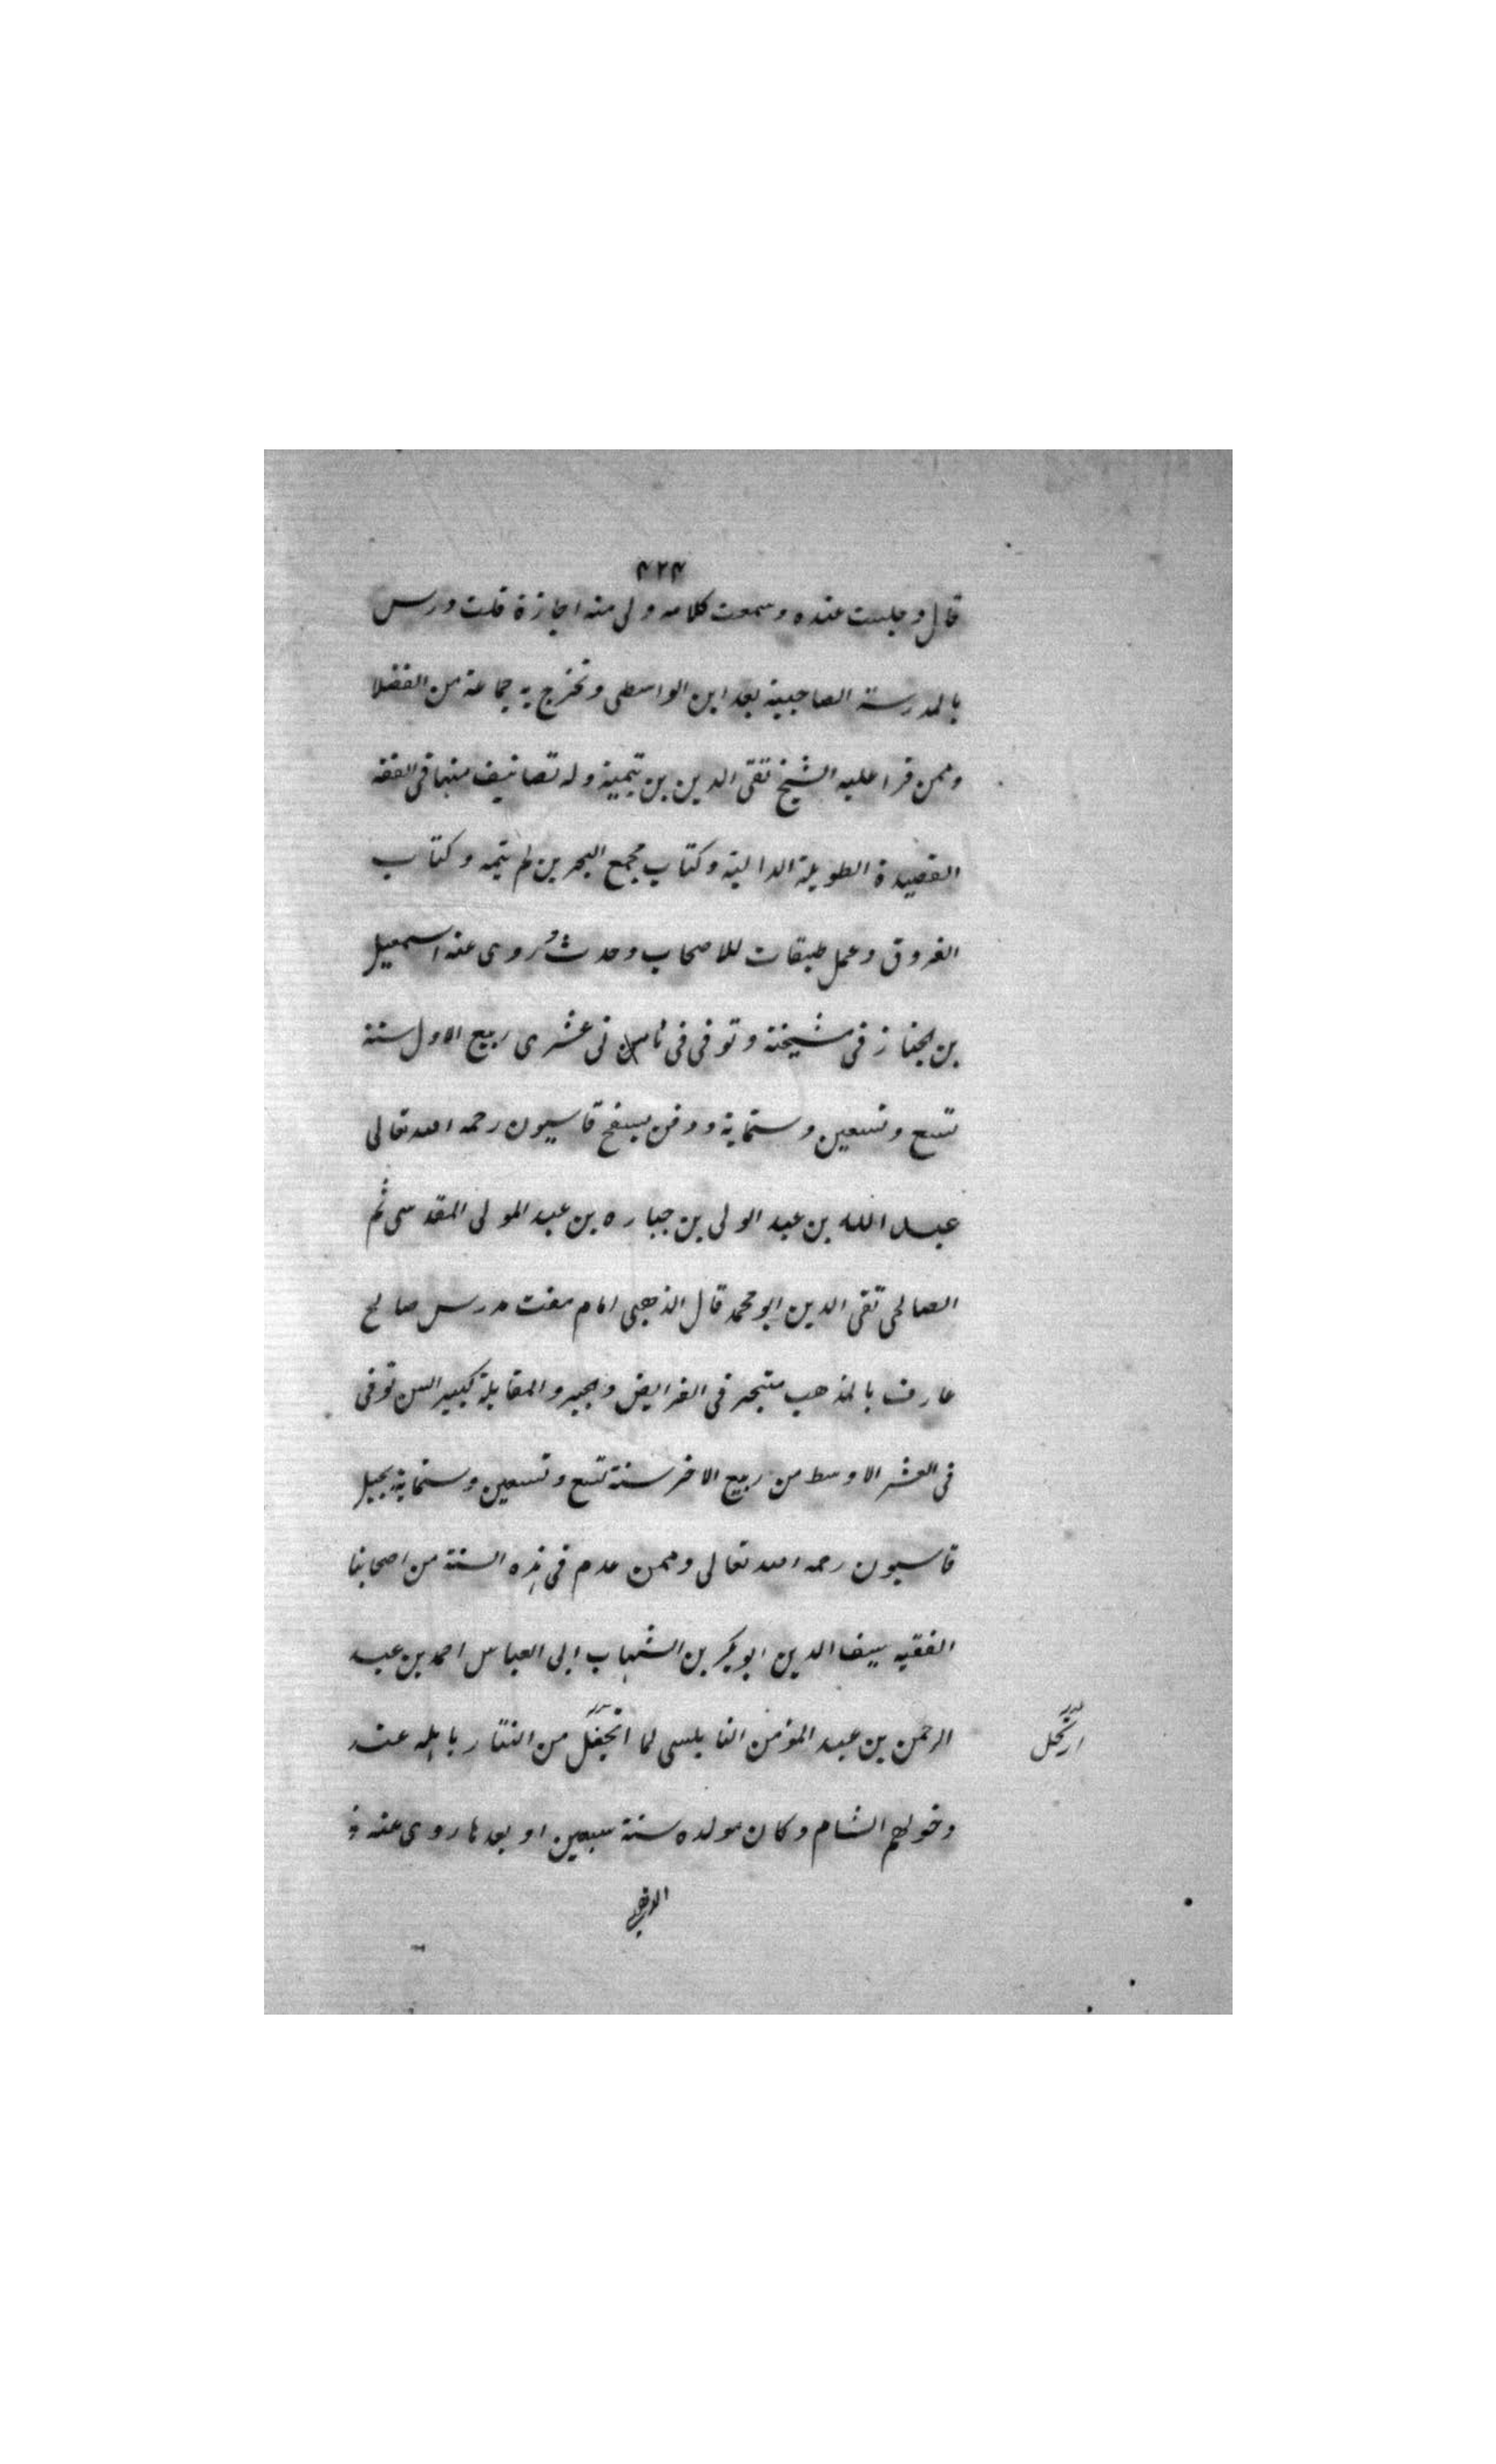 ۴۲۴
قال وجلست عنده وسمعت كلامه ولى منه اجازة قلت ودرس
بالمدرسة الصاحبية بعد ابن الواسطى وتخرج به جماعة من الفضلا
وممن قرا عليه الشيخ تقى الدين بن تيمية وله تصانيف منها فى الفقه
القصيدة الطويلة الدالية وكتاب مجمع البحرين لم يتمه وكتاب
الفروق وعمل طبقات للاصحاب وحدث وروى عنه اسمعيل
بن الخباز فى مشيخته وتوفى فى ثامن عشرى ربيع الاول سنة
تسع وتسعين وستماية ودفن بسفح قاسيون رحمه الله تعالى
عبد الله بن عبد الولى بن جباره بن عبد المولى المقدسى ثم
الصالحى تقى الدين ابو محمد قال الذهبى امام مفت مدرس صالح
عارف بالمذهب متبحر فى الفرايض والجبر والمقابلة كبير السن توفى
فى العشر الاوسط من ربيع الاخر سنة تسع وتسعين وستماية بجبل
قاسيون رحمه الله تعالى وممن عدم فى هذه السنة من اصحابنا
الفقيه سيف الدين ابو بكر بن الشهاب ابى العباس احمد بن عبد
الرحمن بن عبد المؤمن النابلسى لما انجفل من التتار باهله عند
ارتحل
دخولهم الشام وكان مولده سنة سبعين او بعدها روى عنه